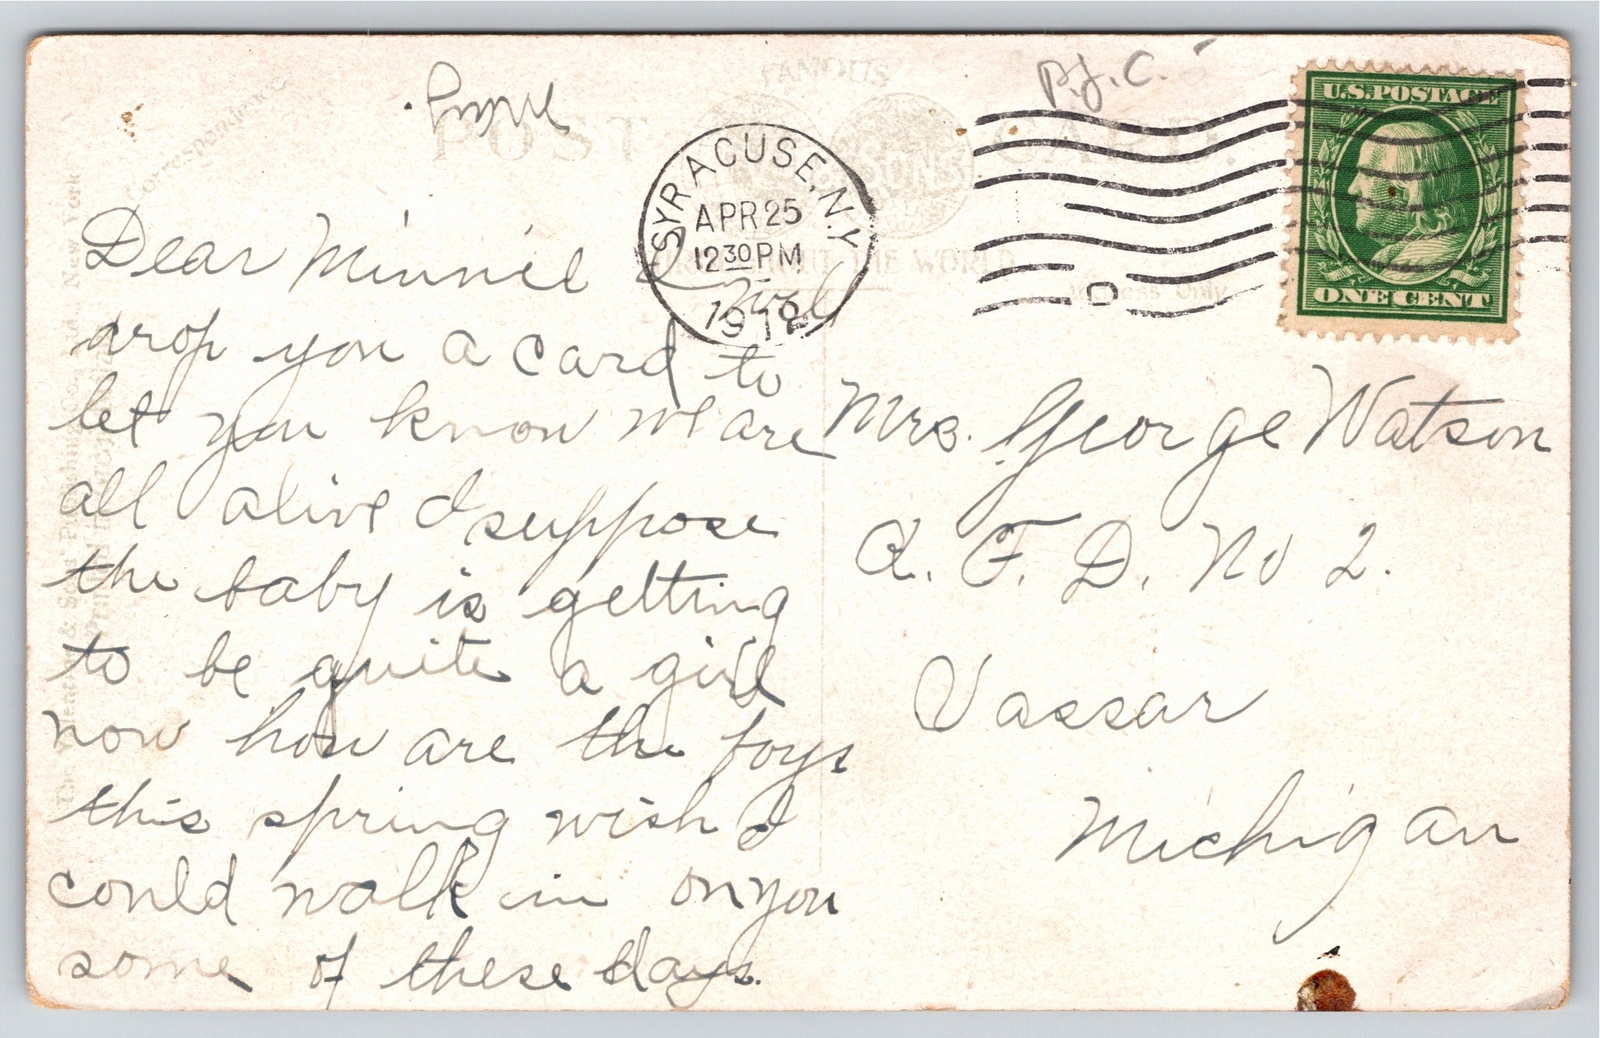 P.J.C.
FAMOUS
POST CARD.
SONS
THE WORLD
Only
Correspondence
New York
SYRACUSE, N.Y.
APR 25
12 30 PM
1912
U.S. POSTAGE
ONE CENT
Dear Minnie I will
drop you a card to
let you know we are
all alive I suppose
the baby is getting
to be quite a girl
now how are the boys
this spring wish I
could walk in on you
some of these days.
Mrs. George Watson
R. F. D. No 2.
Vassar
Michigan